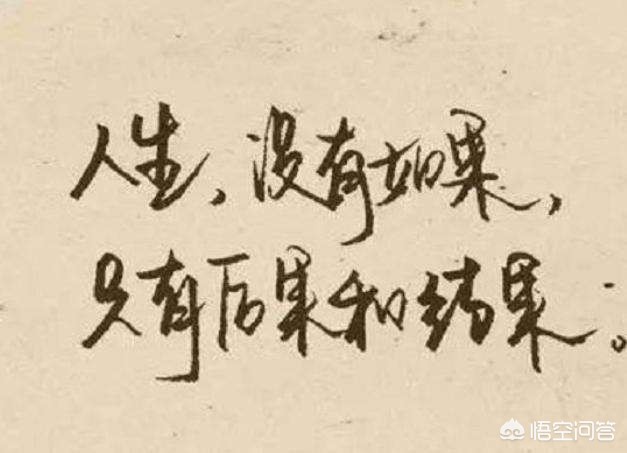 人生、没有如果,
只有后果和结果。
悟空问答